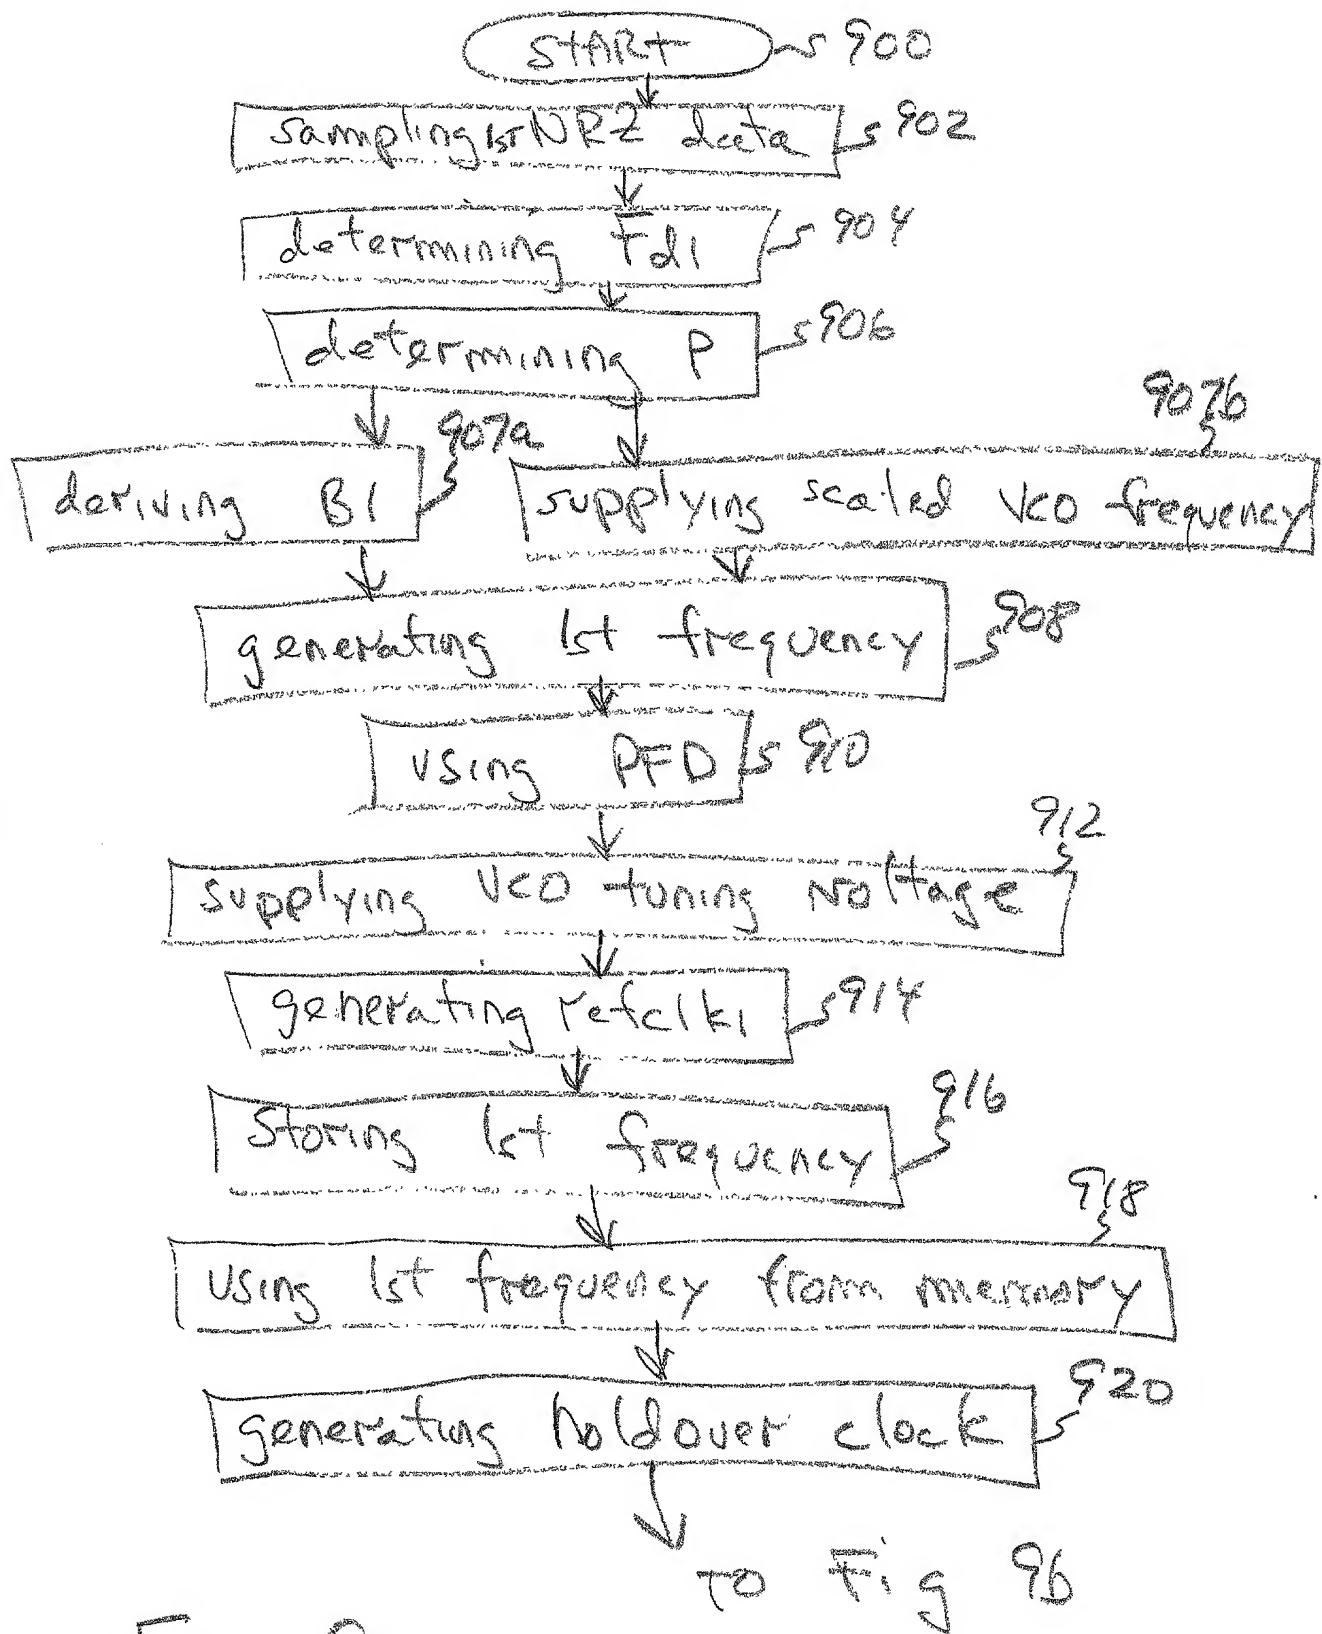 START 900
sampling 1st NRZ data 902
determining Fd1 904
determining P 906
907a 907b
deriving B1 supplying scaled VCO frequency
generating 1st frequency 908
using PFD 910
912
supplying VCO tuning voltage
generating refclk1 914
916
Storing 1st frequency
918
using 1st frequency from memory
920
generating holdover clock
TO Fig 9b